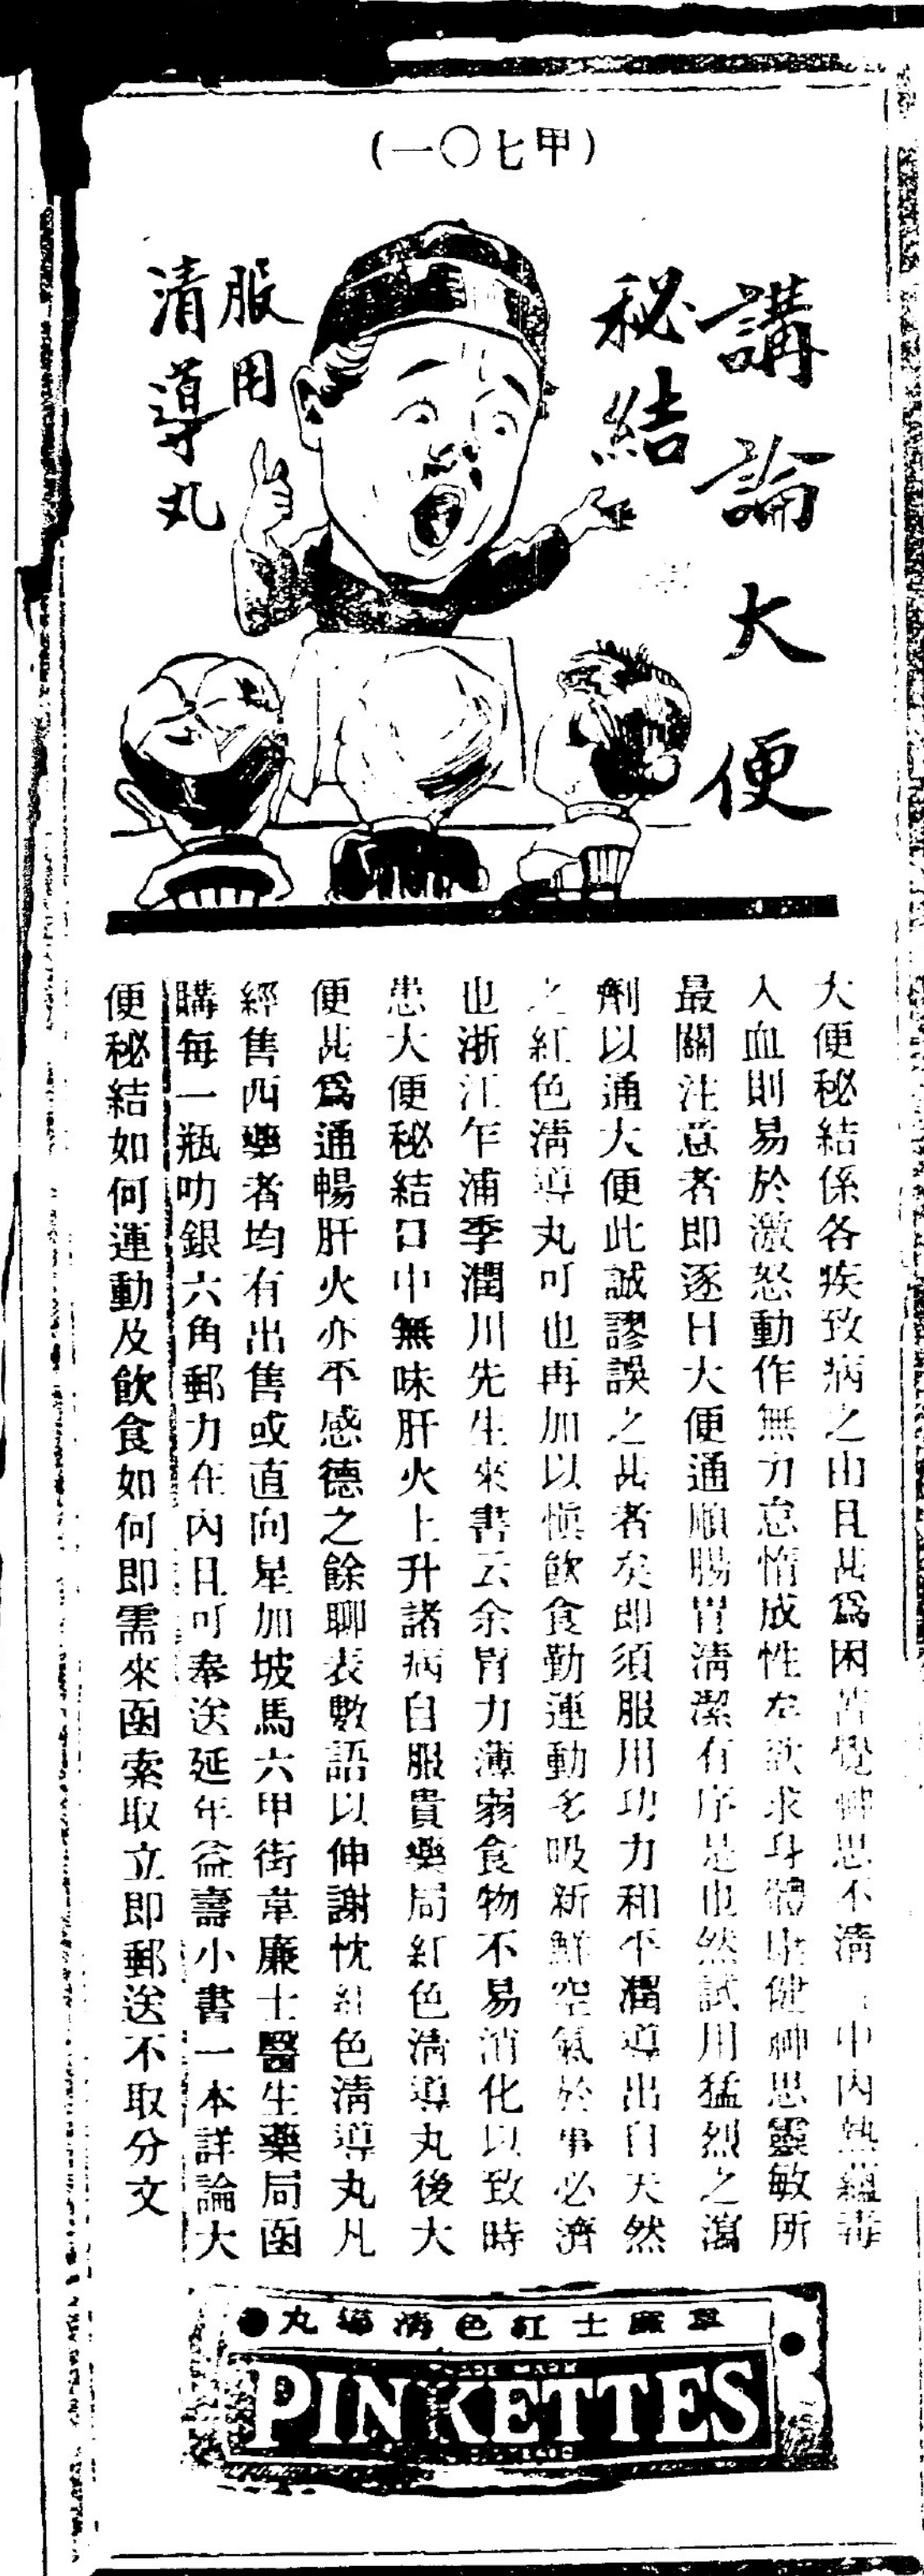 (一〇七甲)
講論大便
秘結
服用
清導丸
大便秘結係各疾致病之由且甚爲困苦覺神思不清中內熱蘊毒
入血則易於激怒動作無力怠惰成性左欲求身體康健神思靈敏所
最關注意者即逐日大便通順腸胃清潔有序是也然試用猛烈之瀉
劑以通大便此誠謬誤之甚者矣即須服用功力和平潤導出自天然
之紅色清導丸可也再加以愼飲食勤運動多吸新鮮空氣於事必濟
也浙江乍浦季潤川先生來書云余胃力薄弱食物不易消化以致時
患大便秘結口中無味肝火上升諸病自服貴藥局紅色清導丸後大
便甚爲通暢肝火亦平感德之餘聊表數語以伸謝忱紅色清導丸凡
經售西藥者均有出售或直向星加坡馬六甲街韋廉士醫生藥局函
購每一瓶叻銀六角郵力在內且可奉送延年益壽小書一本詳論大
便秘結如何運動及飲食如何即需來函索取立即郵送不取分文
韋廉士紅色清導丸
TRADE MARK
PINKETTES